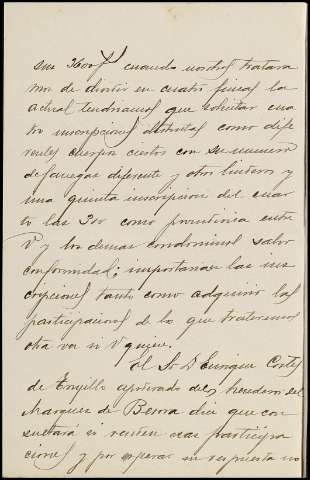 sus 3600 f cuando nosotros tratara
mos de dividir en cuatro fincas la
actual tendriamos que solicitar cua
tro inscripciones distintas como dife
rentes cuerpos ciertos con su numero
de fanegas diferente y otros linderos y
una quinta inscripcion del cuar
to las 300 como proindivisa entre
V y los demas condominos salvo
conformidad; importarian las ins
cripciones tanto como adquirir las
participaciones de lo que trataremos
otra vez si V quiere.
El Sr D Enrique Cortes
de Trujillo apoderado del heredero del
Marques de Berna dice que con
sultará si venden sus participa
ciones y por esperar su respuesta no